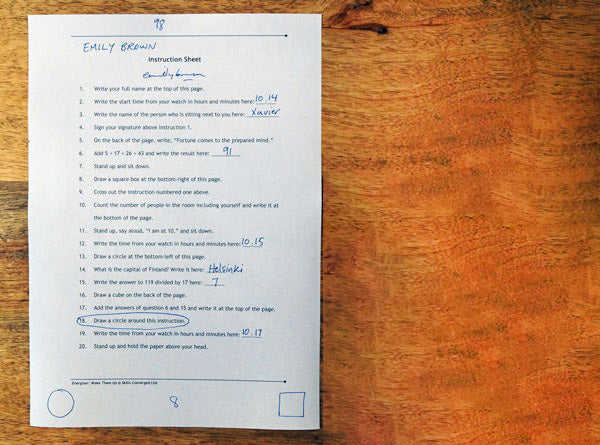 98
EMILY BROWN
Instruction Sheet
emilybrown
1. Write your full name at the top of this page.
2. Write the start time from your watch in hours and minutes here: 10.14
3. Write the name of the person who is sitting next to you here: Xavier
4. Sign your signature above instruction 1.
5. On the back of the page, write, “Fortune comes to the prepared mind.”
6. Add 5 + 17 + 26 + 43 and write the result here: 91
7. Stand up and sit down.
8. Draw a square box at the bottom-right of this page.
9. Cross out the instruction numbered one above.
10. Count the number of people in the room including yourself and write it at
the bottom of the page.
11. Stand up, say aloud, “I am at 10,” and sit down.
12. Write the time from your watch in hours and minutes here: 10.15
13. Draw a circle at the bottom-left of this page.
14. What is the capital of Finland? Write it here: Helsinki
15. Write the answer to 119 divided by 17 here: 7
16. Draw a cube on the back of the page.
17. Add the answers of question 6 and 15 and write it at the top of the page.
18. Draw a circle around this instruction.
19. Write the time from your watch in hours and minutes here: 10.17
20. Stand up and hold the paper above your head.
Energiser: Wake Them Up © Skills Converged Ltd.
8